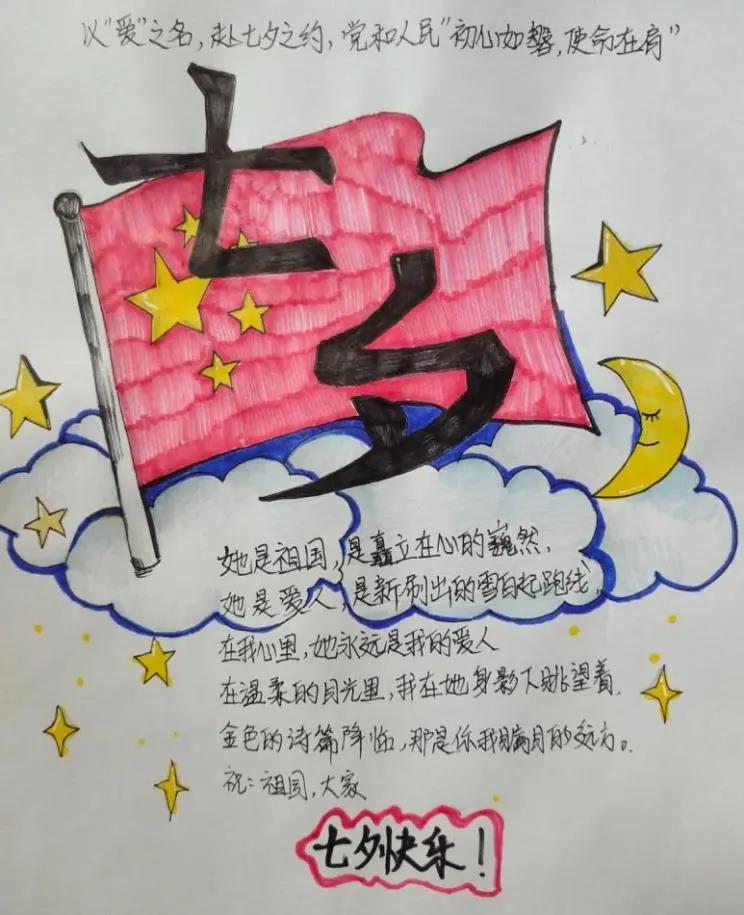 以“爱”之名，赴七夕之约，党和人民“初心如磐，使命在肩”
七夕
她是祖国，是矗立在心的巍然，
她是爱人，是新刷出的雪白起跑线，
在我心里，她永远是我的爱人
在温柔的目光里，我在她身影下眺望着，
金色的诗篇降临，那是你我瞩目的远方。
祝：祖国，大家
七夕快乐！